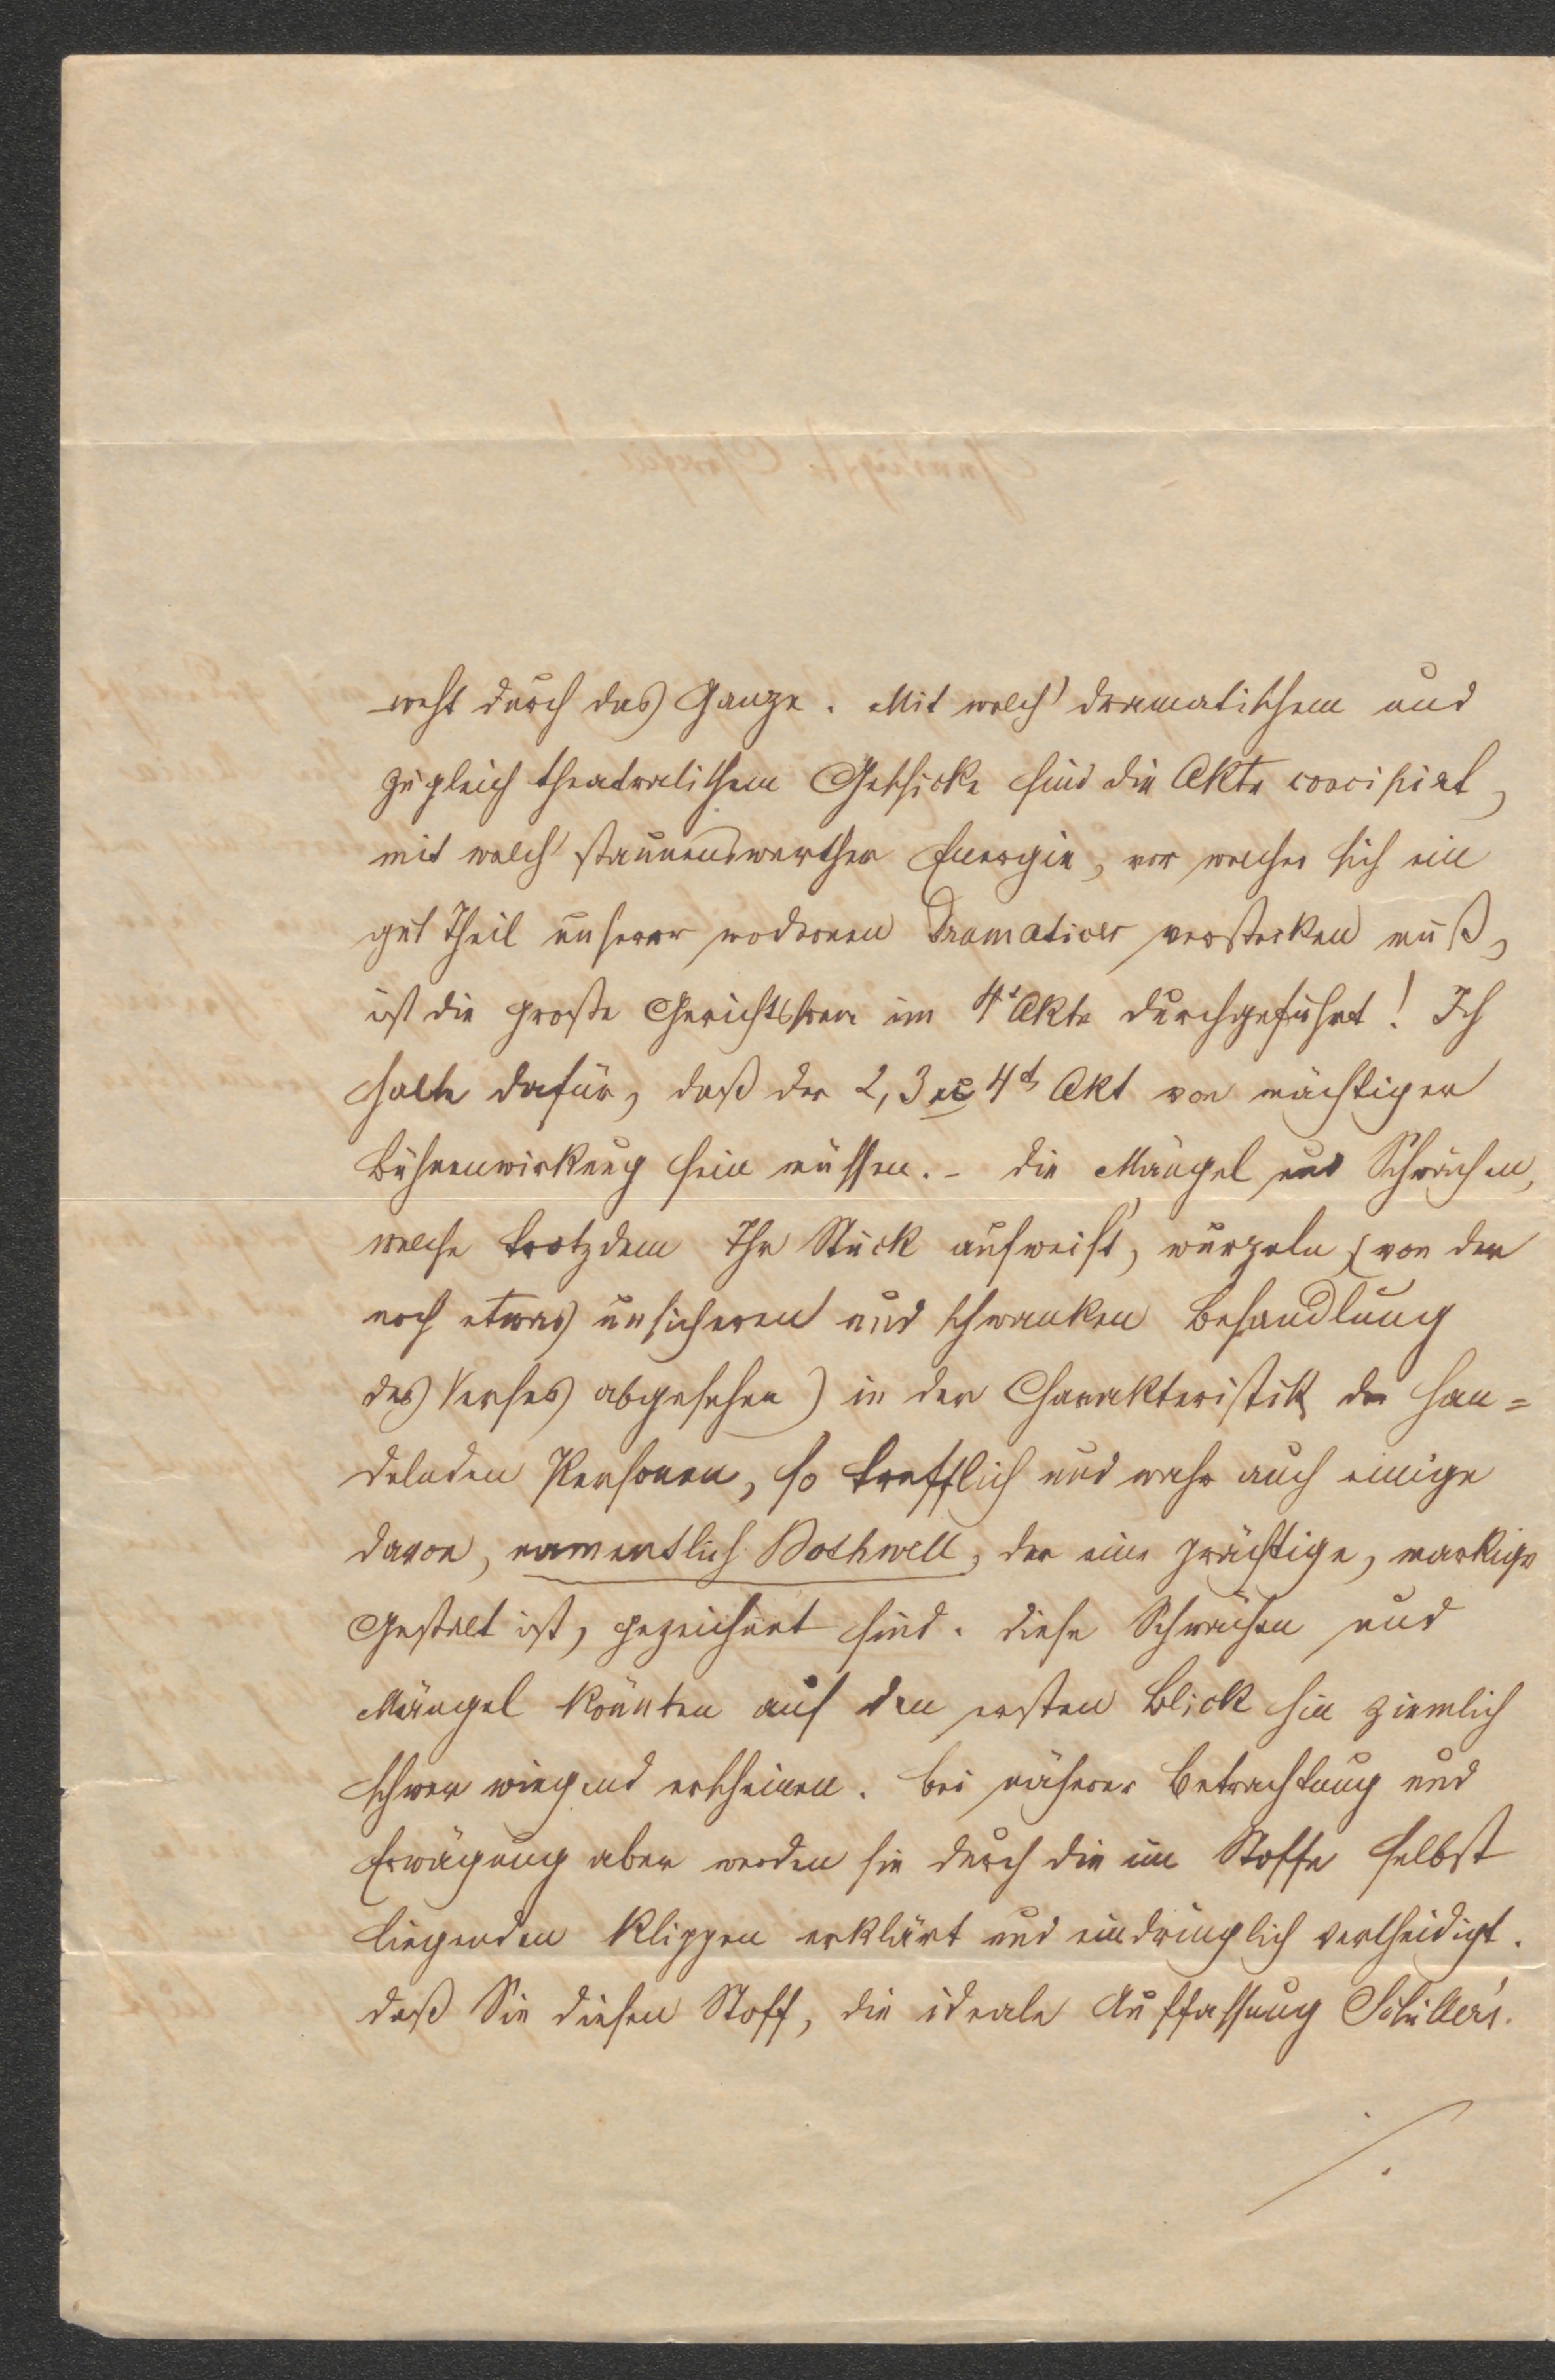 weht durch das Ganze. Mit welch' dramatischem und
zugleich theatralischem Geschicke sind die Akte concipirt,
mit welch' staunenswerther Energie, vor welcher sich ein
gut Theil unserer modernen Dramatiker verstecken muß,
ist die große Gerichtsscene im 4t Akte durchgeführt! Ich
halte dafür, daß der 2, 3 u 4te Akt von mächtiger
Bühnenwirkung sein müssen. – Die Mängel und Schwächen,
welche trotzdem Ihr Stück aufweist, wurzeln (von der
noch etwas unsicheren und schwanken Behandlung
des Verses abgesehen) in der Charakteristik der han=
delnden Personen, so trefflich und wahr auch einige
davon, namentlich Bothwell, der eine prächtige, markige
Gestalt ist, gezeichnet sind. Diese Schwächen und
Mängel könnten auf den ersten Blick hin ziemlich
schwer wiegend erscheinen. Bei näherer Betrachtung und
Erwägung aber werden sie durch die im Stoffe selbst
liegenden Klippen erklärt und eindringlich vertheidigt.
Daß Sie diesen Stoff, die ideale Auffassung Schiller's.
./.